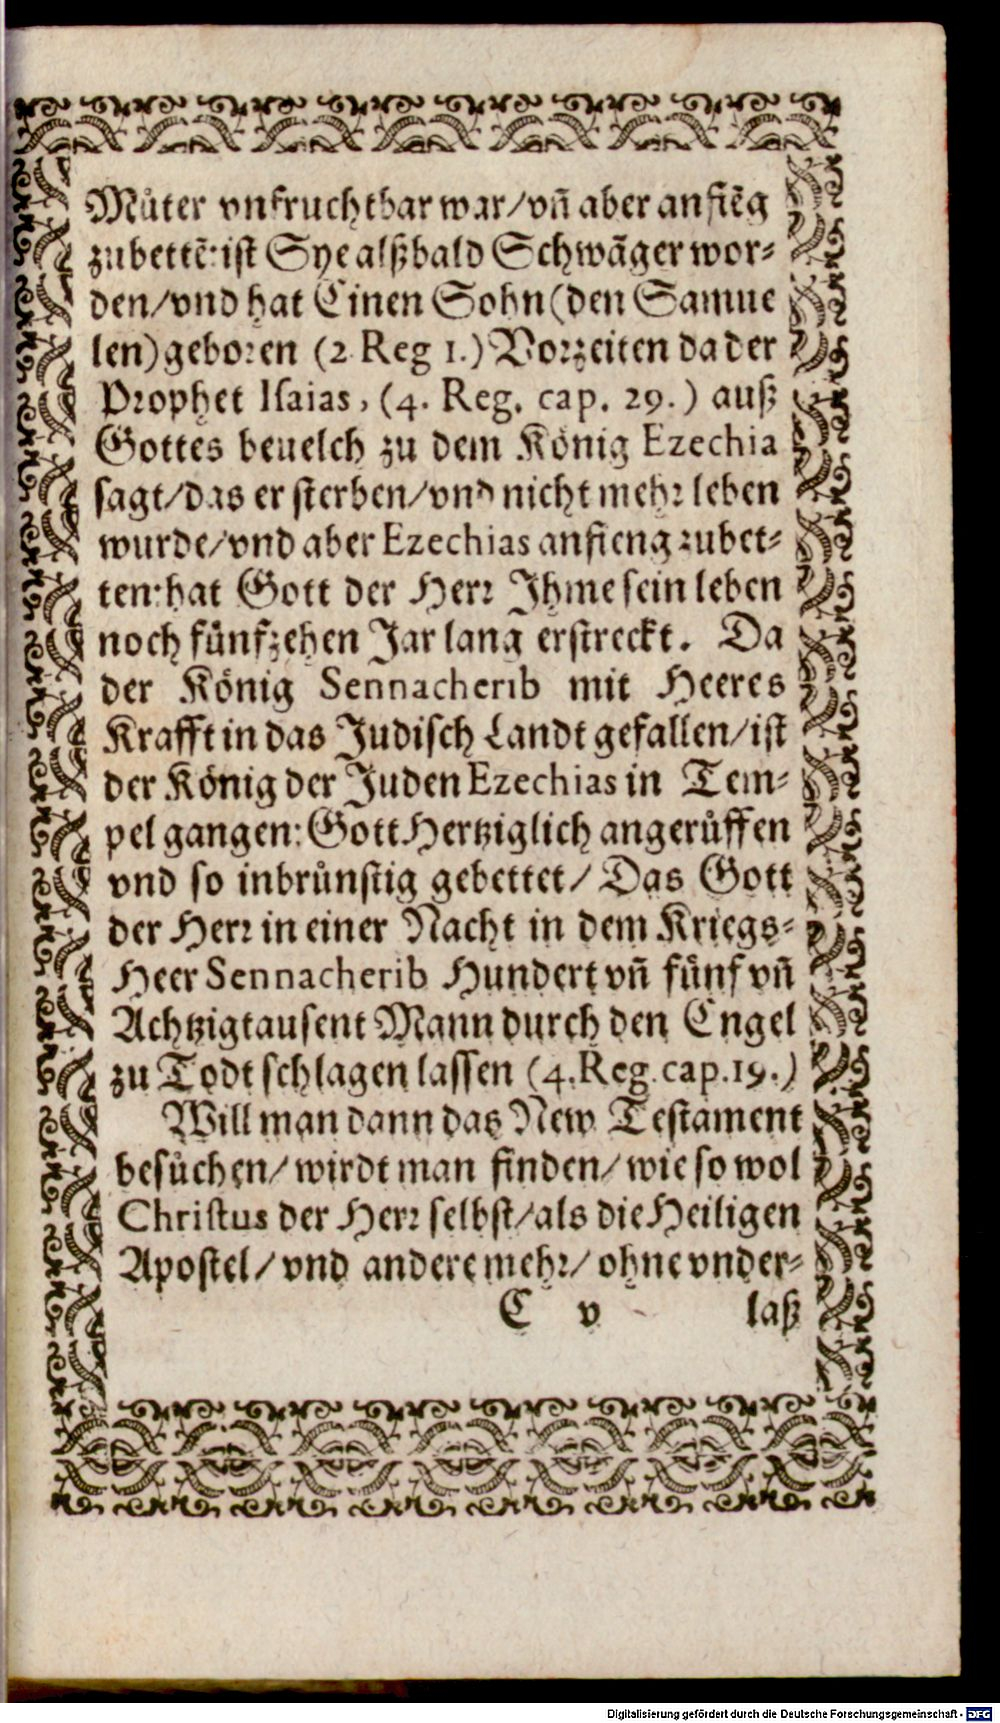 Můter vnfruchtbar war/vñ aber anfiẽg
zubettẽ: ist Sye alßbald Schwãger wor-
den/vnd hat Einen Sohn (den Samue
len) geboren (2 Reg 1.) Vorzeiten da der
Prophet Isaias, (4. Reg. cap. 29.) auß
Gottes beuelch zu dem König Ezechia
sagt/das er sterben/vnd nicht mehr leben
wurde/vnd aber Ezechias anfieng zubet-
ten: hat Gott der Herr Ihme sein leben
noch fünfzehen Jar lang erstreckt. Da
der König Sennacherib mit Heeres
Krafft in das Judisch Landt gefallen/ist
der König der Juden Ezechias in Tem-
pel gangen: Gott Hertziglich angerůffen
vnd so inbrünstig gebettet/ Das Gott
der Herr in einer Nacht in dem Kriegs-
Heer Sennacherib Hundert vñ fünf vñ
Achtzigtausent Mann durch den Engel
zu Todt schlagen lassen (4. Reg. cap. 19.)
Will man dann das New Testament
besůchen/ wirdt man finden/ wie so wol
Christus der Herr selbst/als die Heiligen
Apostel/ vnd andere mehr/ ohne vnder-
C v laß
Digitalisierung gefördert durch die Deutsche Forschungsgemeinschaft - DFG